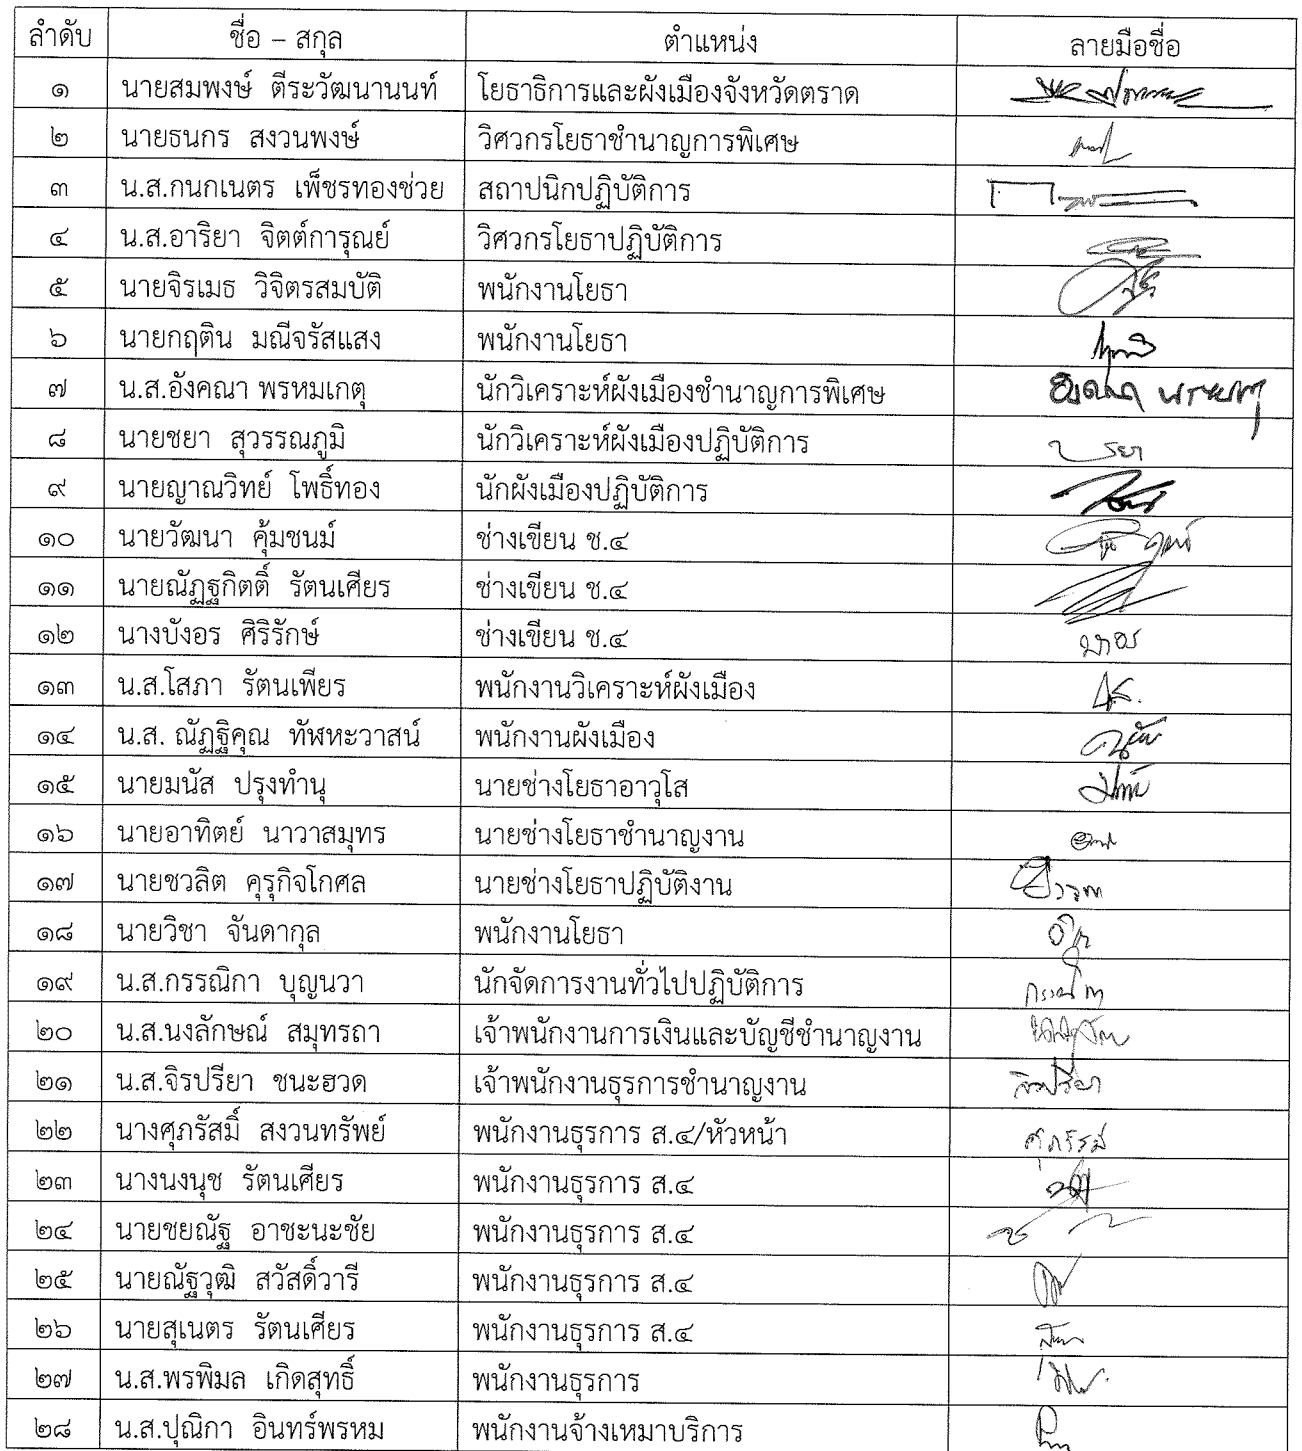 ลำดับ ชื่อ – สกุล ตำแหน่ง ลายมือชื่อ
๑ นายสมพงษ์ ตีระวัฒนานนท์ โยธาธิการและผังเมืองจังหวัดตราด
๒ นายธนกร สงวนพงษ์ วิศวกรโยธาชำนาญการพิเศษ
๓ น.ส.กนกเนตร เพ็ชรทองช่วย สถาปนิกปฏิบัติการ
๔ น.ส.อาริยา จิตต์การุณย์ วิศวกรโยธาปฏิบัติการ
๕ นายจิรเมธ วิจิตรสมบัติ พนักงานโยธา
๖ นายกฤติน มณีจรัสแสง พนักงานโยธา
๗ น.ส.อังคณา พรหมเกตุ นักวิเคราะห์ผังเมืองชำนาญการพิเศษ อังคณา พรหมเกตุ
๘ นายชยา สุวรรณภูมิ นักวิเคราะห์ผังเมืองปฏิบัติการ
๙ นายญาณวิทย์ โพธิ์ทอง นักผังเมืองปฏิบัติการ
๑๐ นายวัฒนา คุ้มชนม์ ช่างเขียน ช.๔
๑๑ นายณัฏฐกิตติ์ รัตนเศียร ช่างเขียน ช.๔
๑๒ นางบังอร ศิริรักษ์ ช่างเขียน ช.๔
๑๓ น.ส.โสภา รัตนเพียร พนักงานวิเคราะห์ผังเมือง
๑๔ น.ส. ณัฏฐิคุณ ทัฬหะวาสน์ พนักงานผังเมือง
๑๕ นายมนัส ปรุงทำนุ นายช่างโยธาอาวุโส
๑๖ นายอาทิตย์ นาวาสมุทร นายช่างโยธาชำนาญงาน
๑๗ นายชวลิต คุรุกิจโกศล นายช่างโยธาปฏิบัติงาน
๑๘ นายวิชา จันดากุล พนักงานโยธา
๑๙ น.ส.กรรณิกา บุญนวา นักจัดการงานทั่วไปปฏิบัติการ
๒๐ น.ส.นงลักษณ์ สมุทรถา เจ้าพนักงานการเงินและบัญชีชำนาญงาน
๒๑ น.ส.จิรปรียา ชนะฮวด เจ้าพนักงานธุรการชำนาญงาน จิรปรียา
๒๒ นางศุภรัสมิ์ สงวนทรัพย์ พนักงานธุรการ ส.๔/หัวหน้า
๒๓ นางนงนุช รัตนเศียร พนักงานธุรการ ส.๔
๒๔ นายชยณัฐ อาชะนะชัย พนักงานธุรการ ส.๔
๒๕ นายณัฐวุฒิ สวัสดิ์วารี พนักงานธุรการ ส.๔
๒๖ นายสุเนตร รัตนเศียร พนักงานธุรการ ส.๔
๒๗ น.ส.พรพิมล เกิดสุทธิ์ พนักงานธุรการ
๒๘ น.ส.ปุณิกา อินทร์พรหม พนักงานจ้างเหมาบริการ